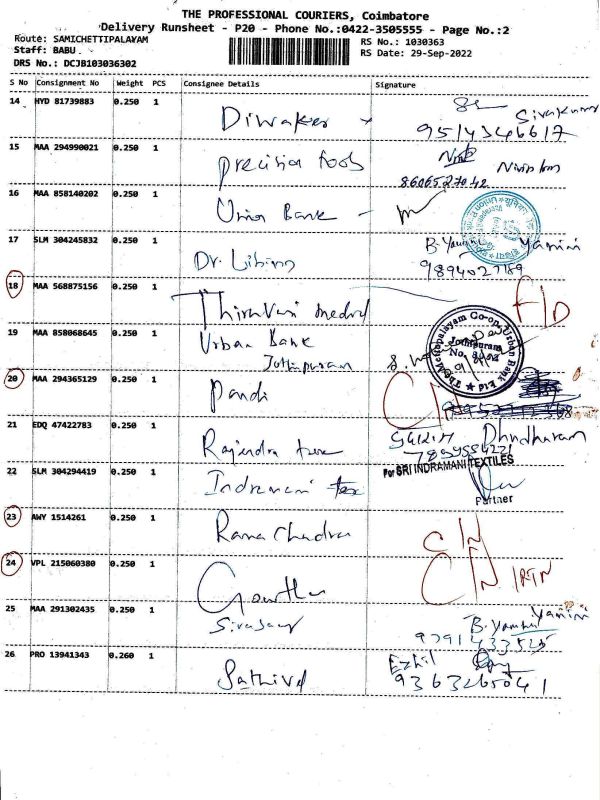 THE PROFESSIONAL COURIERS, Coimbatore
Delivery Runsheet - P20 - Phone No.:0422-3505555 - Page No.:2
Route: SAMICHETTIPALAYAM
RS No.: 1030363
Staff: BABU
RS Date: 29-Sep-2022
DRS No.: DCJB103036302
S No Consignment No Weight PCS Consignee Details Signature
14 HYD 81739883 0.250 1 Diwaker Sivakumar
9514346617
15 MAA 294990021 0.250 1 Precision tools
8606527042
16 MAA 858140202 0.250 1 Union Bank
17 SLM 304245832 0.250 1 Dr. B. Yamini Yamini
9894027189
18 MAA 568875156 0.250 1 medical
19 MAA 858068645 0.250 1 Urban Bank
Jothipuram
The Mettupalayam Co-op. Urban Bank Ltd
Jothipuram
20 MAA 294365129 0.250 1 Pandi C/N
21 EDQ 47422783 0.250 1 Rajendra
22 SLM 304294419 0.250 1 Indramani tex
For SRI INDRAMANI TEXTILES
Partner
23 AWY 1514261 0.250 1 Rama Chandra C/N
24 VPL 215060380 0.250 1 C/N
25 MAA 291302435 0.250 1 B. Yamini Yamini
9791433525
26 PRO 13941343 0.260 1 Sathivel Ezhil
9363265041